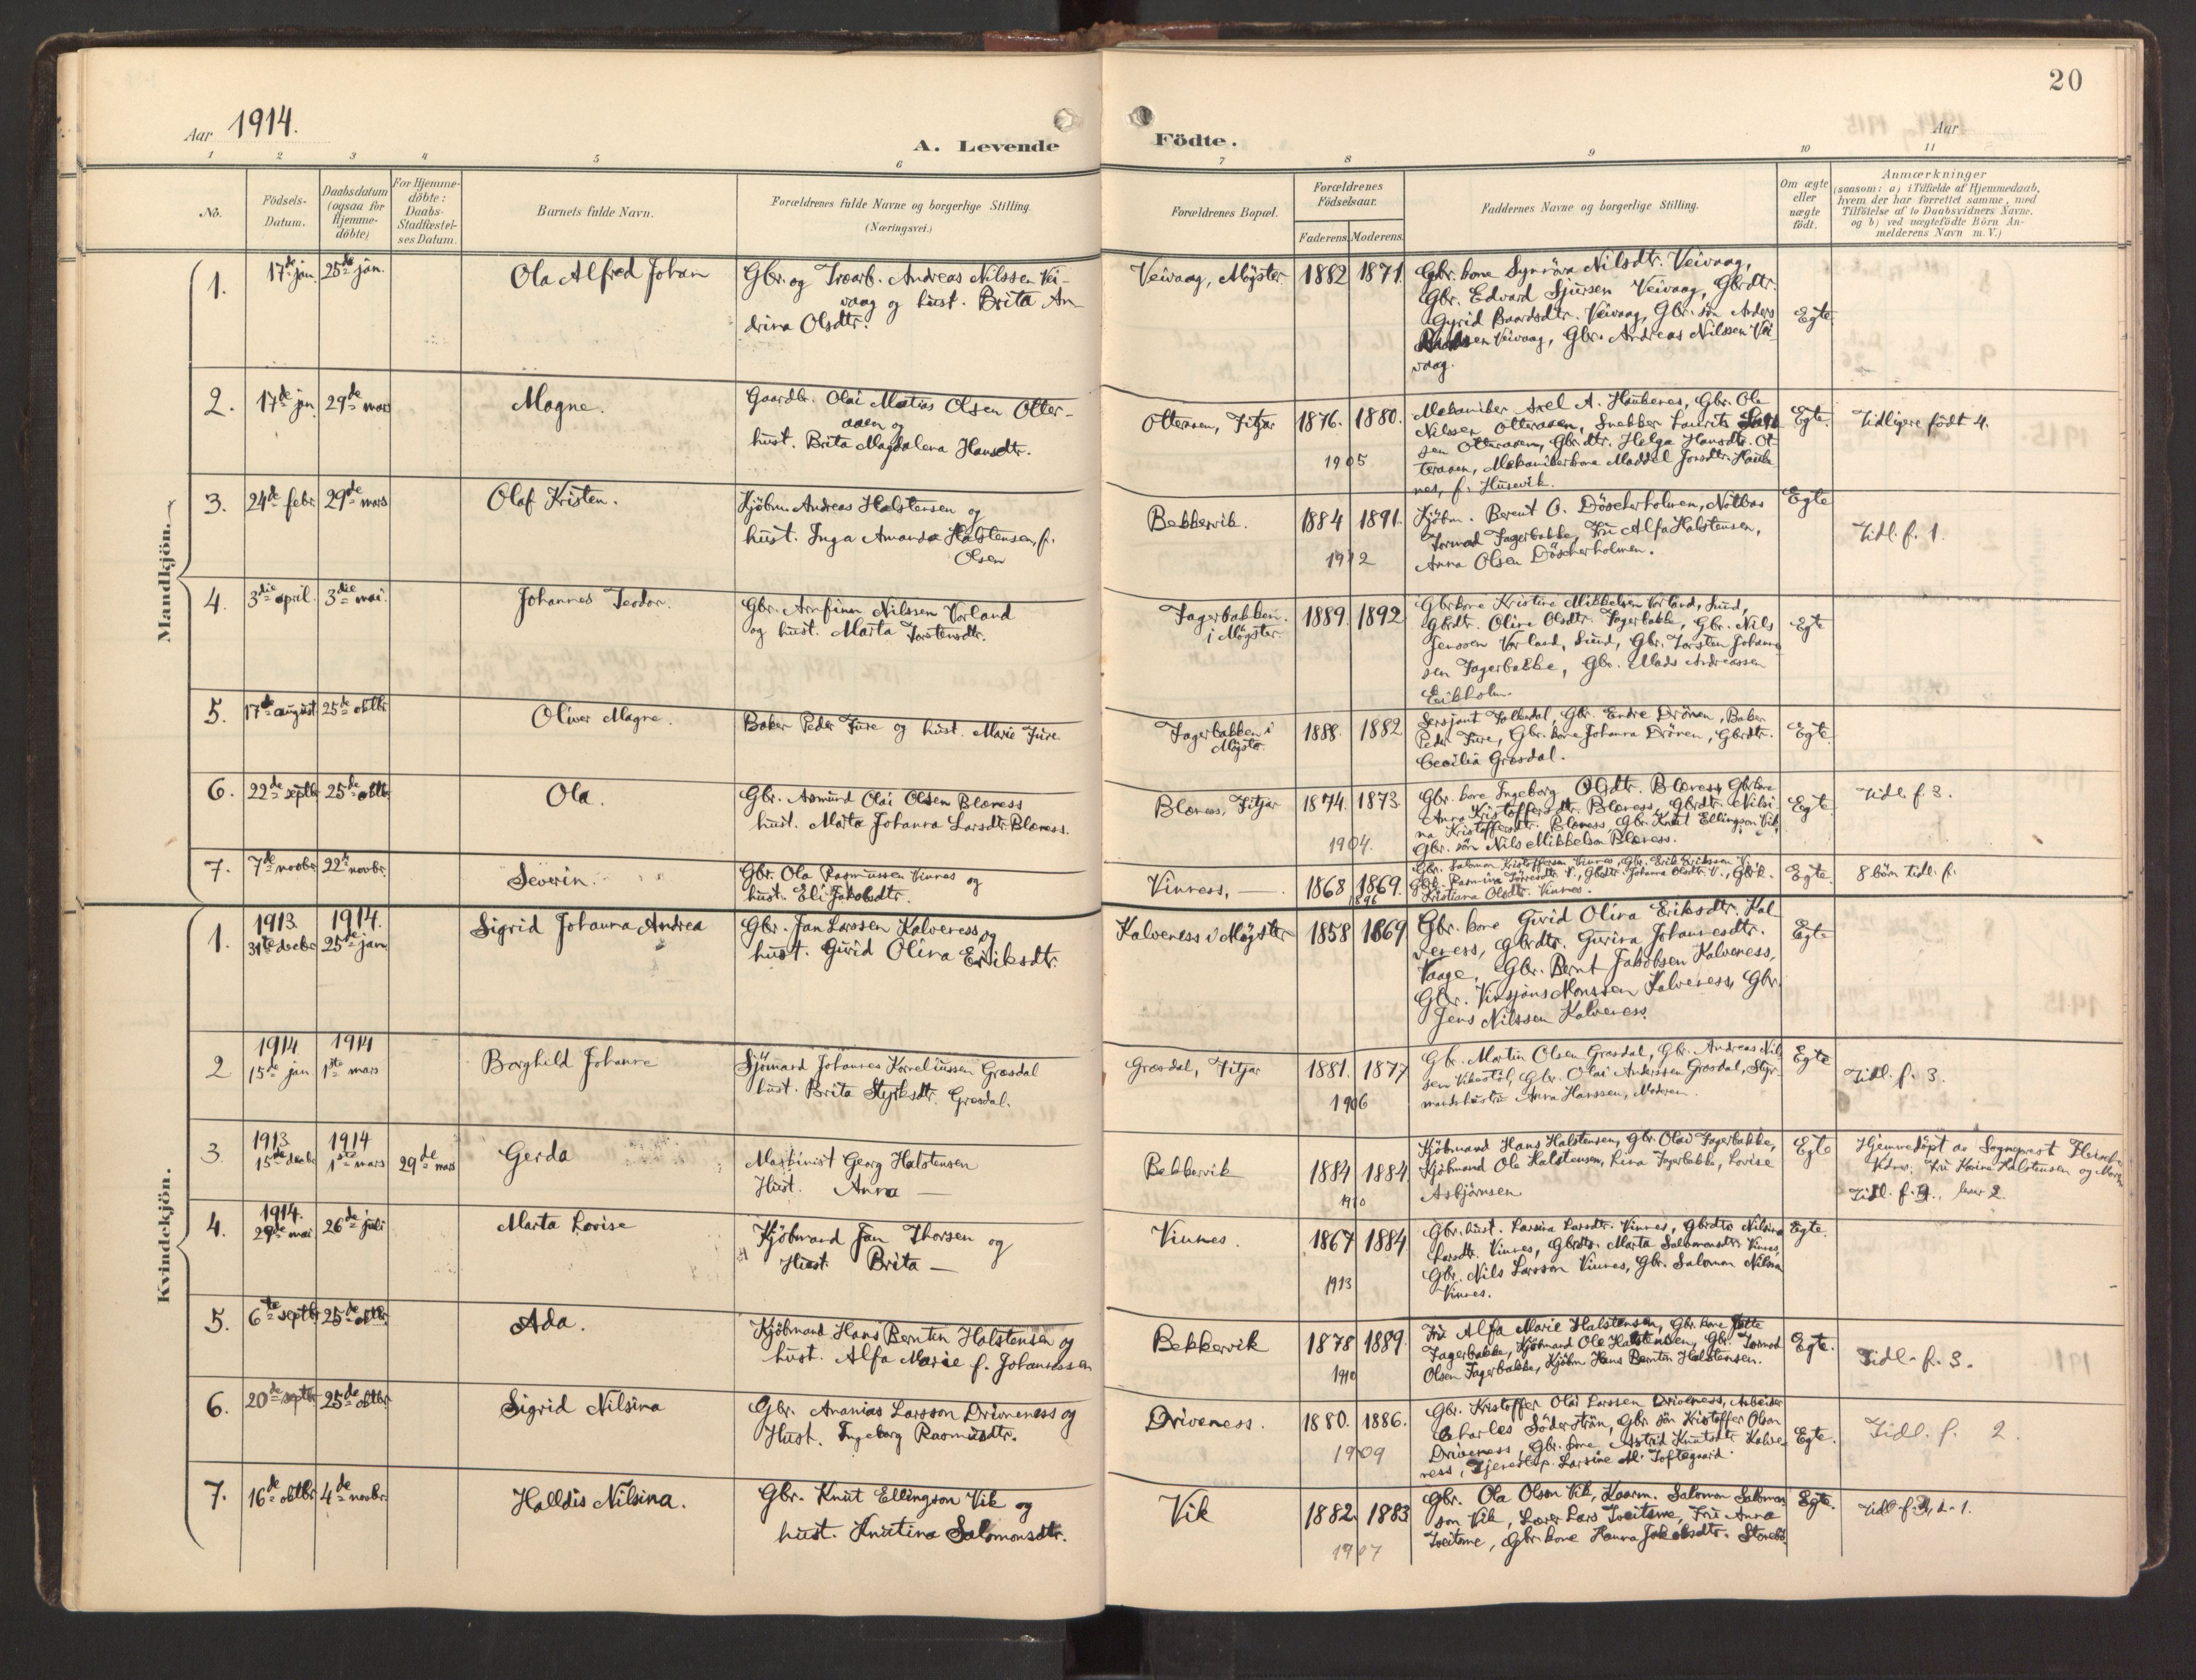 20
Aar 1914.
A. Levende Födte.
Aar
1 2 3 4 5 6 7 8 9 10 11
No.
Födsels-
Datum.
Daabsdatum
(ogsaa for
Hjemme-
döbte)
For Hjemme-
döbte:
Daabs-
Stadfæstel-
ses Datum.
Barnets fulde Navn.
Forældrenes fulde Navne og borgerlige Stilling.
(Næringsvei.)
Forældrenes Bopæl.
Forældrenes
Födselsaar.
Faderens. Moderens.
Faddernes Navne og borgerlige Stilling.
Om ægte
eller
uægte
födt.
Anmærkninger
(saasom: a) i Tilfælde af Hjemmedaab,
hvem der har forrettet samme, med
Tilföielse af to Daabsvidners Navne.
og b) ved uægtefödte Börn An-
melderens Navn m. V.)
Mandkjön.
1. 17de jan. 25de jan.
Ola Alfred Johan
Gbr. og Træarb. Andreas Nilssen Vei-
vaag og hust. Brita An-
drina Olsdtr.
Veivaag, Møgster
1882 1871.
Gbr. kone Synnöva Nilsdtr. Veivaag,
Gbr. Edvard Sjursen Veivaag, Gbrdtr.
Gyrid Baardsdtr. Veivaag, Gbr. sön Anders
Veivaag, Gbr. Andreas Nilssen Vei-
vaag.
Egte.
2. 17de jan. 29de mars
Magne.
Gaardbr. Olai Matias Olsen Otter-
aaen og
hust. Brita Magdalena Hansdtr.
Otteraaen, Fitjar
1876. 1880.
1905
Mekaniker Axel A. Haukenes, Gbr. Ole
Nilssen Otteraaen, Snekker Laurits
sen Otteraaen, Gbr. dtr. Helga Hansdtr. Ot-
teraaen, Mekanikerkone Maddel Jonsdtr. Hauke-
nes, f. Husevik.
Egte.
Tidligere födt 4.
3. 24de febr. 29de mars
Olaf Kristen.
Kjöbm. Andreas Halstensen og
hust. Inga Amanda Halstensen, f.
Olsen
Bekkervik.
1884 1891.
1912
Kjöbm. Berent O. Döscherholmen, Notbas
Tormod Fagerbakke, Fru Alfa Halstensen,
Anna Olsen Döscherholmen.
Egte
Tidl. f. 1.
4. 3die april. 3die mai.
Johannes Teodor.
Gbr. Arnfinn Nilssen Vorland
og hust. Marta Torstensdtr.
Fagerbakken
i Møgster
1889. 1892
Gbrkone Kristine Mikkelsen Vorland, Sund,
Gbrdtr. Oline Olsdtr. Fagerbakke, Gbr. Nils
Jenssen Vorland, Sund, Gbr. Torsten Johanne-
sen Fagerbakke, Gbr. Mads Andreassen
Eikholm.
Egte
5. 17de august 25de oktbr.
Oliver Magne.
Baker Peder Fure og hust. Marie Fure
Fagerbakken i
Møgster
1888. 1882
Sersjant Tollevdal, Gbr. Endre Drönen, Baker
Peder Fure, Gbr. kone Johanna Drönen, Gbrdtr.
Cecilia Græsdal.
Egte
6. 22de septbr. 25de oktbr.
Ola.
Gbr. Asmund Olai Olsen Blæness
hust. Marta Johanna Larsdtr. Blæness.
Blæness, Fitjar
1874. 1873.
1904.
Gbr. kone Ingeborg Olsdtr. Blæness, Gbrkone
Anna Kristoffersdtr. Blæness, Gbrdtr. Nilsi-
na Kristoffersdtr. Blæness, Gbr. Knut Ellingson Vik,
Gbr. sön Nils Mikkelson Blæness.
Egte
Tidl. f. 3.
7. 7de novbr. 22de novbr.
Severin.
Gbr. Ola Rasmussen Vinnes og
hust. Eli Jakobsdtr.
Vinness, —
1868 1869.
1896
Gbr. Salomon Kristoffersen Vinnes, Gbr. Erik Eriksson V.,
Gbrk. Rasmina Torresdtr. V., Gbrdtr. Johanna Olsdtr. V., Gbrk.
Kristiana Olsdtr. Vinnes.
Egte.
8 börn tidl. f.
Kvindekjön.
1. 1913. 31te decbr. 1914. 25de jan.
Sigrid Johanna Andrea
Gbr. Jan Larssen Kalveness og
hust. Gurid Olina Eriksdtr.
Kalveness i Møgster
1858 1869
Gbr. kone Gurid Olina Eriksdtr. Kal-
veness, Gbrdtr. Gurina Johannesdtr.
Vaage, Gbr. Bernt Jakobsen Kalveness,
Gbr. Vinsjans Monssen Kalveness, Gbr.
Jens Nilssen Kalveness.
Egte
2. 1914 15de jan. 1914 1ste mars
Borghild Johanne
Sjömand Johannes Korneliussen Græsdal
hust. Brita Styrksdtr. Græsdal.
Græsdal, Fitjar
1881. 1877
1906
Gbr. Martin Olsen Græsdal, Gbr. Andreas Nil-
sen Vikastöl, Gbr. Olai Anderssen Græsdal, Styr-
mandshustru Anna Hanssen, Moderen.
Egte
Tidl. f. 3.
3. 1913. 15de decbr. 1914 1ste mars 29de mars
Gerda
Maskinist Georg Halstensen
Hust. Anna —
Bekkervik
1884 1884.
1910
Kjöbmand Hans Halstensen, Gbr. Olai Fagerbakke,
Kjöbmand Ole Halstensen, Lina Fagerbakke, Lovise
Asbjörnsen
Egte
Hjemmedöpt av Sogneprest
Vidner: Fru Karina Halstensen og
Tidl. f. lever 2.
4. 1914. 29de mai 26de juli
Marta Lovise
Kjöbmand Jan Thorsen og
Hust. Brita —
Vinnes.
1867 1884
1913
Gbr. hust. Larsina Larsdtr. Vinnes, Gbrdtr. Nilsina
Larsdtr. Vinnes, Gbrdtr. Marta Salomonsdtr. Vinnes,
Gbr. Nils Larsson Vinnes, Gbr. Salomon Nilsson
Vinnes.
Egte.
5. 6te septbr. 25de oktbr.
Ada.
Kjöbmand Hans Bernten Halstensen og
hust. Alfa Marie f. Johannessen
Bekkervik
1878 1889.
1910
Fru Alfa Marie Halstensen, Gbr. kone Jette
Fagerbakke, Kjöbmand Ole Halstensen, Gbr. Tormod
Olsen Fagerbakke, Kjöbm. Hans Bernten Halstensen.
Egte.
Tidl. f. 3.
6. 20de septbr. 25de oktbr.
Sigrid Nilsina
Gbr. Ananias Larsson Drivneness og
Hust. Ingeborg Rasmusdtr.
Driveness.
1880. 1886.
1909
Gbr. Kristoffer Olai Larssen Driveness, Arbeider
Charles Söderströn, Gbr. sön Kristoffer Olson
Driveness, Gbr. kone Astrid Knutsdtr. Kalve-
ness, Tjenestep. Larsine M. Toftegaard.
Egte.
Tidl. f. 2.
7. 16de oktbr. 4de novbr.
Halldis Nilsina.
Gbr. Knut Ellingson Vik og
hust. Knutina Salomonsdtr.
Vik
1882. 1883
1907
Gbr. Ola Olson Vik, Kaarm. Salomon Salomon-
son Vik, Lærer Lars Tveitane, Fru Anna
Tveitane, Gbr. kone Hanna Jakobsdtr. Storebö.
Egte.